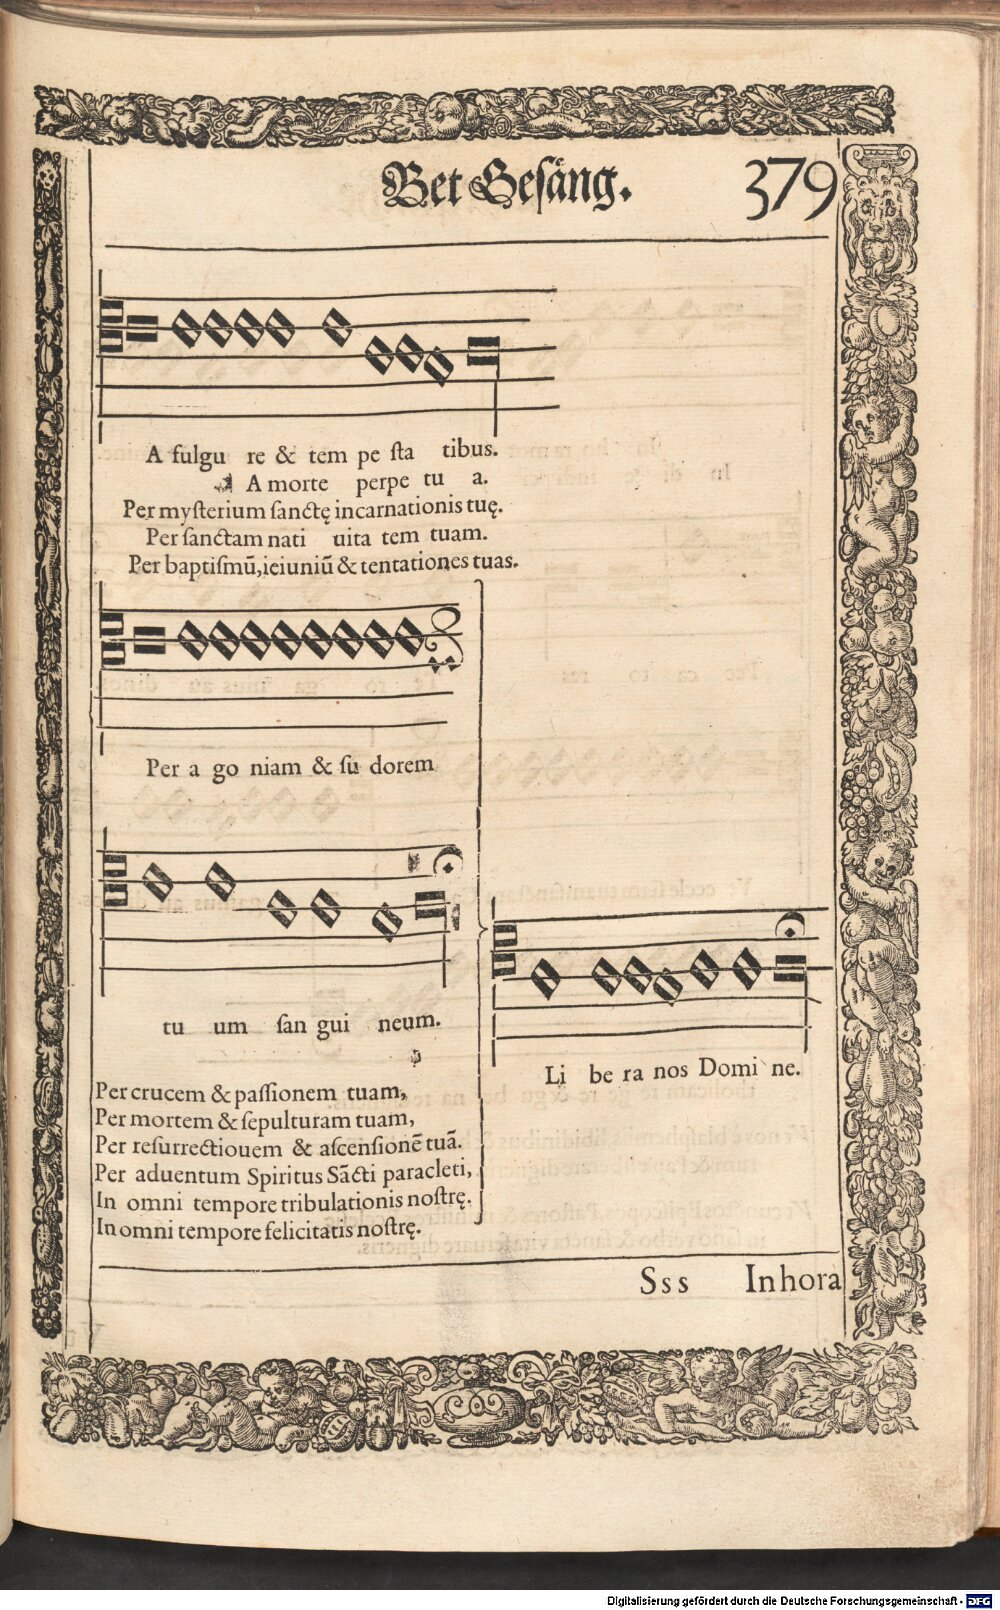 Bet Gesäng. 379
A fulgu re & tem pe sta tibus.
A morte perpe tu a.
Per mysterium sanctę incarnationis tuę.
Per sanctam nati uita tem tuam.
Per baptismū, ieiuniū & tentationes tuas.
Per a go niam & su dorem
tu um san gui neum.
Li be ra nos Domi ne.
Per crucem & passionem tuam,
Per mortem & sepulturam tuam,
Per resurrectiouem & ascensionē tuā.
Per aduentum Spiritus Sācti paracleti,
In omni tempore tribulationis nostrę.
In omni tempore felicitatis nostrę.
Sss In hora
Digitalisierung gefördert durch die Deutsche Forschungsgemeinschaft - DFG